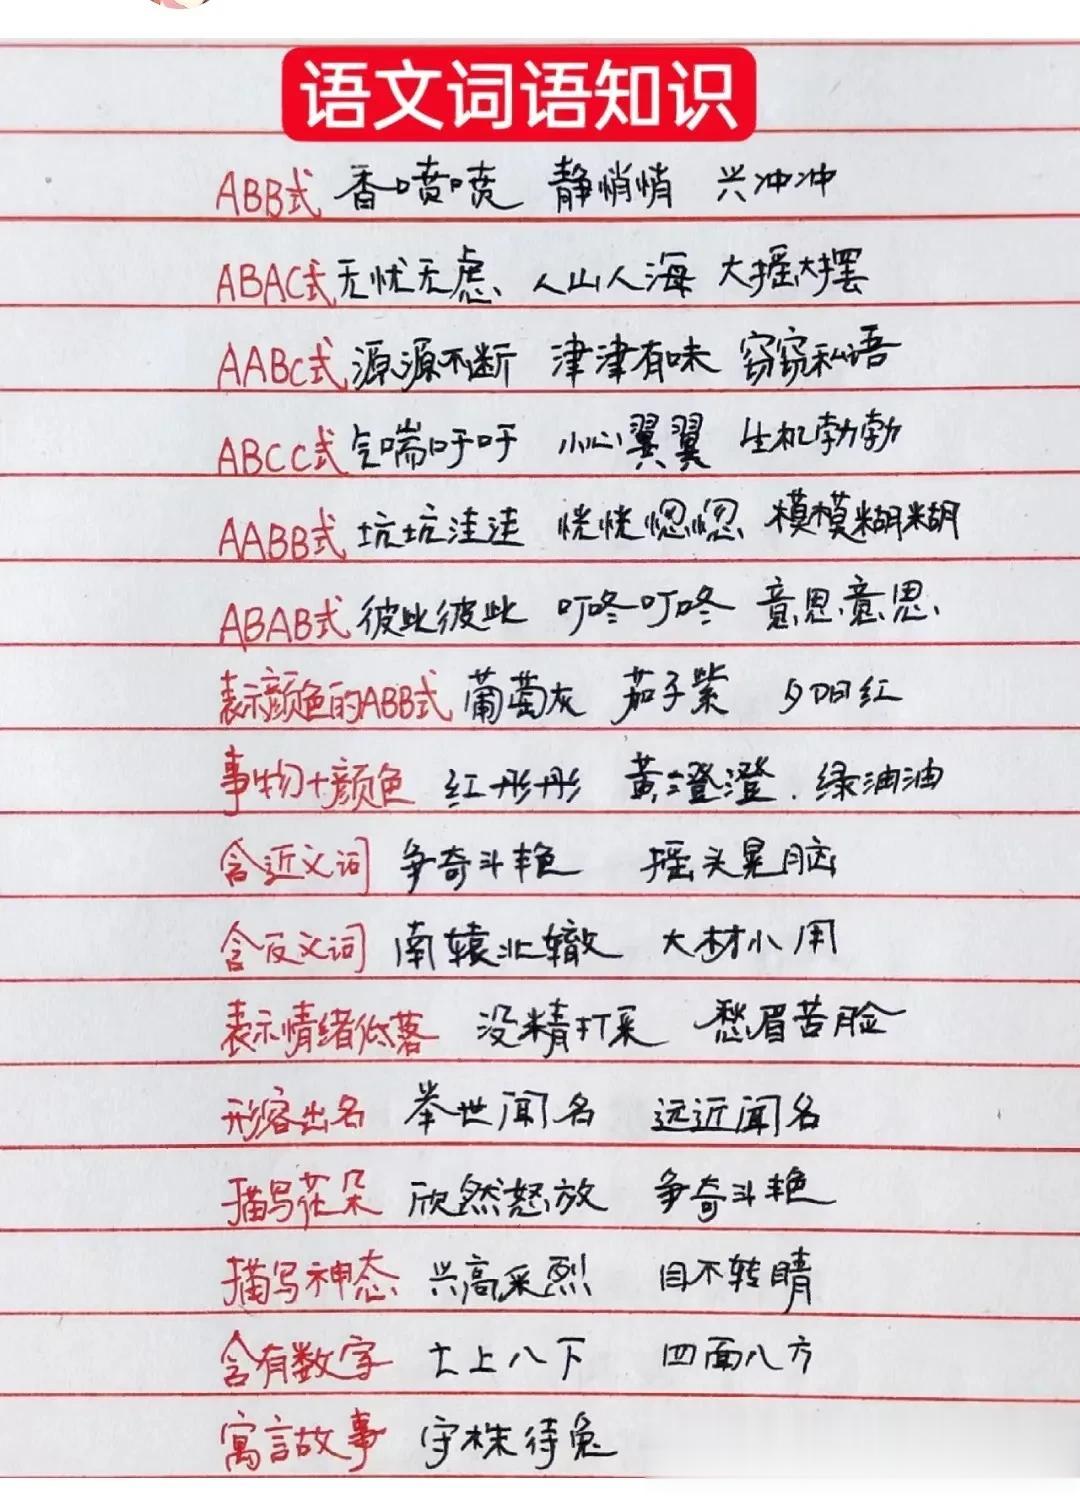 语文词语知识
ABB式 香喷喷 静悄悄 兴冲冲
ABAC式 无忧无虑 人山人海 大摇大摆
AABC式 源源不断 津津有味 窃窃私语
ABCC式 气喘吁吁 小心翼翼 生机勃勃
AABB式 坑坑洼洼 恍恍惚惚 模模糊糊
ABAB式 彼此彼此 叮咚叮咚 意思意思
表示颜色的ABB式 葡萄灰 茄子紫 夕阳红
事物+颜色 红彤彤 黄澄澄 绿油油
含近义词 争奇斗艳 摇头晃脑
含反义词 南辕北辙 大材小用
表示情绪低落 没精打采 愁眉苦脸
形容出名 举世闻名 远近闻名
描写花朵 欣然怒放 争奇斗艳
描写神态 兴高采烈 目不转睛
含有数字 七上八下 四面八方
寓言故事 守株待兔